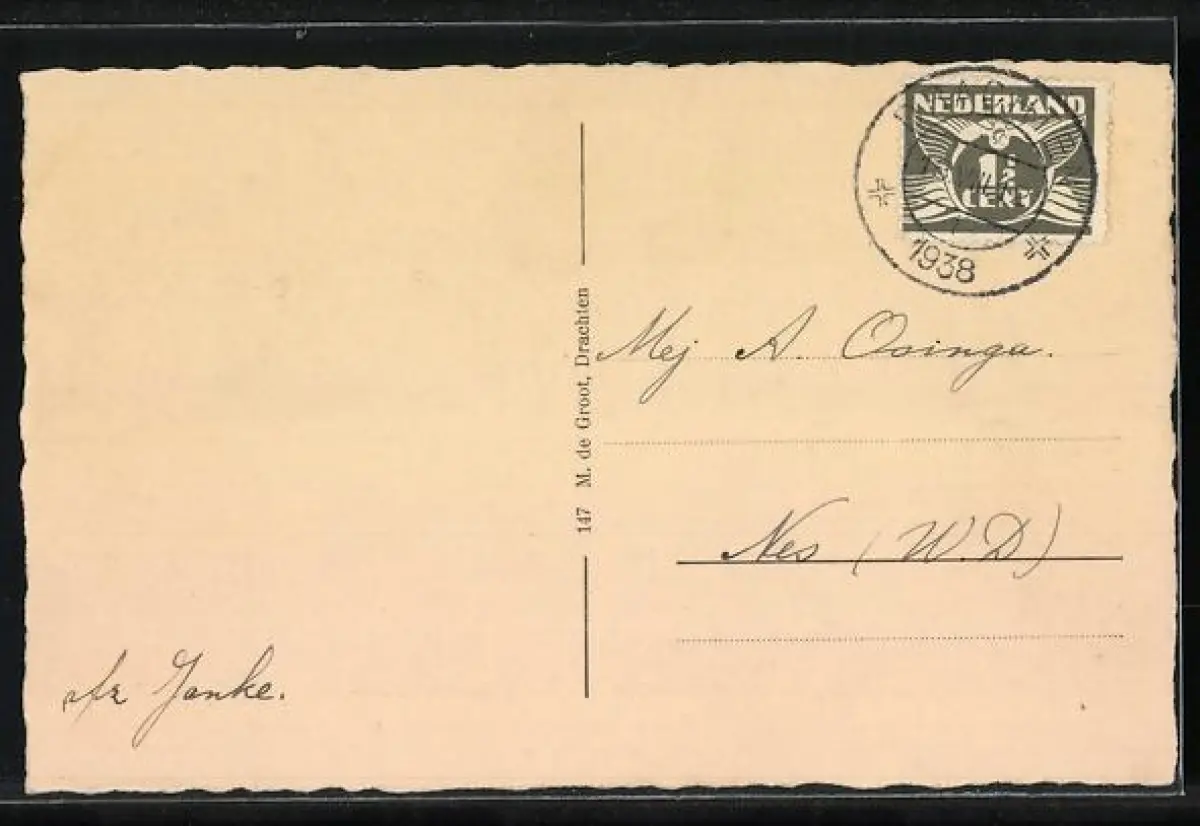 NEDERLAND
1½
CENT
1938
147 M. de Groot, Drachten
Mej A. Osinga.
Nes (W.D)
afz Janke.